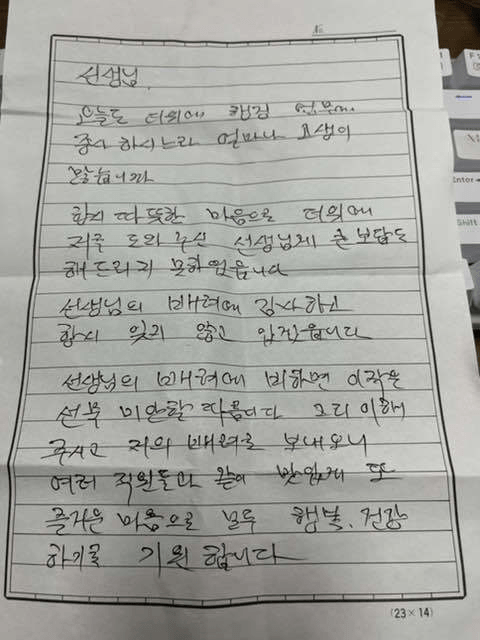 No
선생님.
오늘도 더위에 행정 업무에
종사 하시느라 얼마나 고생이
많습니까
항시 따뜻한 마음으로 더위에
저를 도와 주신 선생님께 큰 보답도
해드리지 못하였읍니다
선생님의 배려에 감사하고
항시 잊지 않고 있겠읍니다
선생님의 배려에 비하면 이작은
선물 미안할 따름니다 그리 이해
주시고 저의 배려로 보내오니
여러 직원들과 같이 맛있게 또
즐거운 마음으로 모두 행복. 건강
하기를 기원 합니다
(23×14)
Enter
Shift